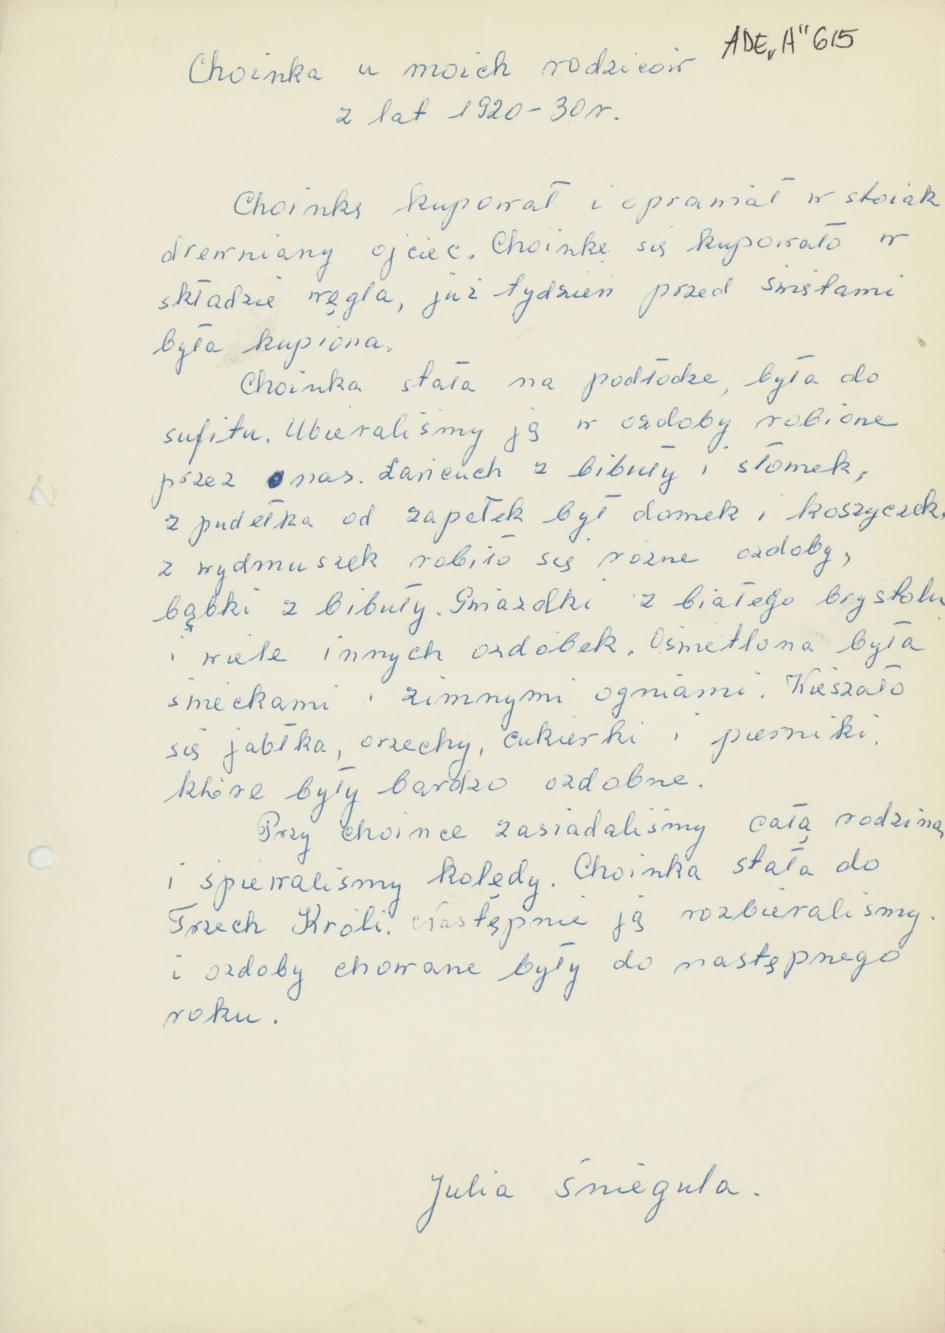 ADE „A" 615
Choinka u moich rodziców
z lat 1920-30r.
Choinkę kupował i oprawiał w stoiak
drewniany ojciec. Choinkę się kupowało w
składzie węgla, już tydzień przed świętami
była kupiona.
Choinka stała na podłodze, była do
sufitu. Ubieraliśmy ją w ozdoby robione
przez nas. Łańcuch z bibuły i słomek,
z pudełka od zapałek był domek i koszyczek,
z wydmuszek robiło się różne ozdoby,
bąbki z bibuły. Gwiazdki z białego brystolu
i wiele innych ozdóbek. Oświetlona była
świeckami i zimnymi ogniami. Wieszało
się jabłka, orzechy, cukierki i pierniki,
które były bardzo ozdobne.
Przy choince zasiadaliśmy całą rodziną
i śpiewaliśmy kolędy. Choinka stała do
Trzech Króli. Następnie ją rozbieraliśmy.
i ozdoby chowane były do następnego
roku.
Julia Śniegula.